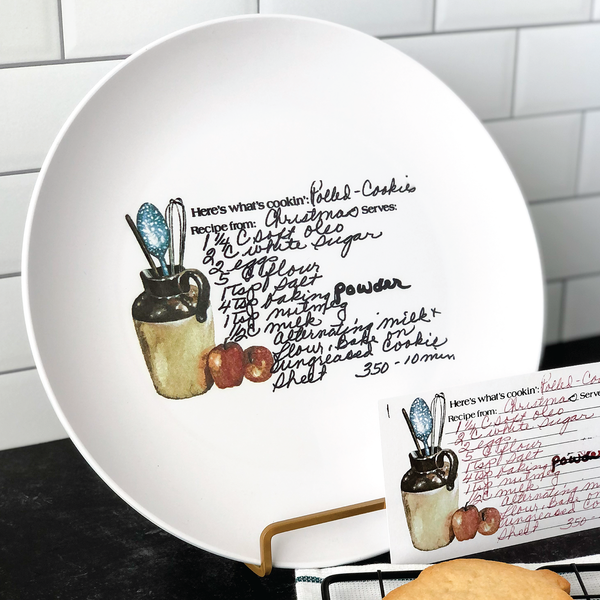 Here's what's cookin': Rolled-Cookies
Recipe from: Christmas Serves:
1 1/4 C soft oleo
2 C white sugar
2 eggs
5 C flour
1 tsp salt
4 tsp baking powder
1 tsp nutmeg
1/2 C milk
alternating milk +
flour, Bake on
ungreased cookie
sheet 350-10 min
Here's what's cookin': Rolled-Co
Recipe from: Christmas Serve
1 1/4 C soft oleo
2 C white sugar
2 eggs
5 C flour
1 tsp salt
4 tsp baking powde
1 tsp nutmeg
1/2 C milk
alternating m
flour, Bake o
ungreased Coo
sheet 350-